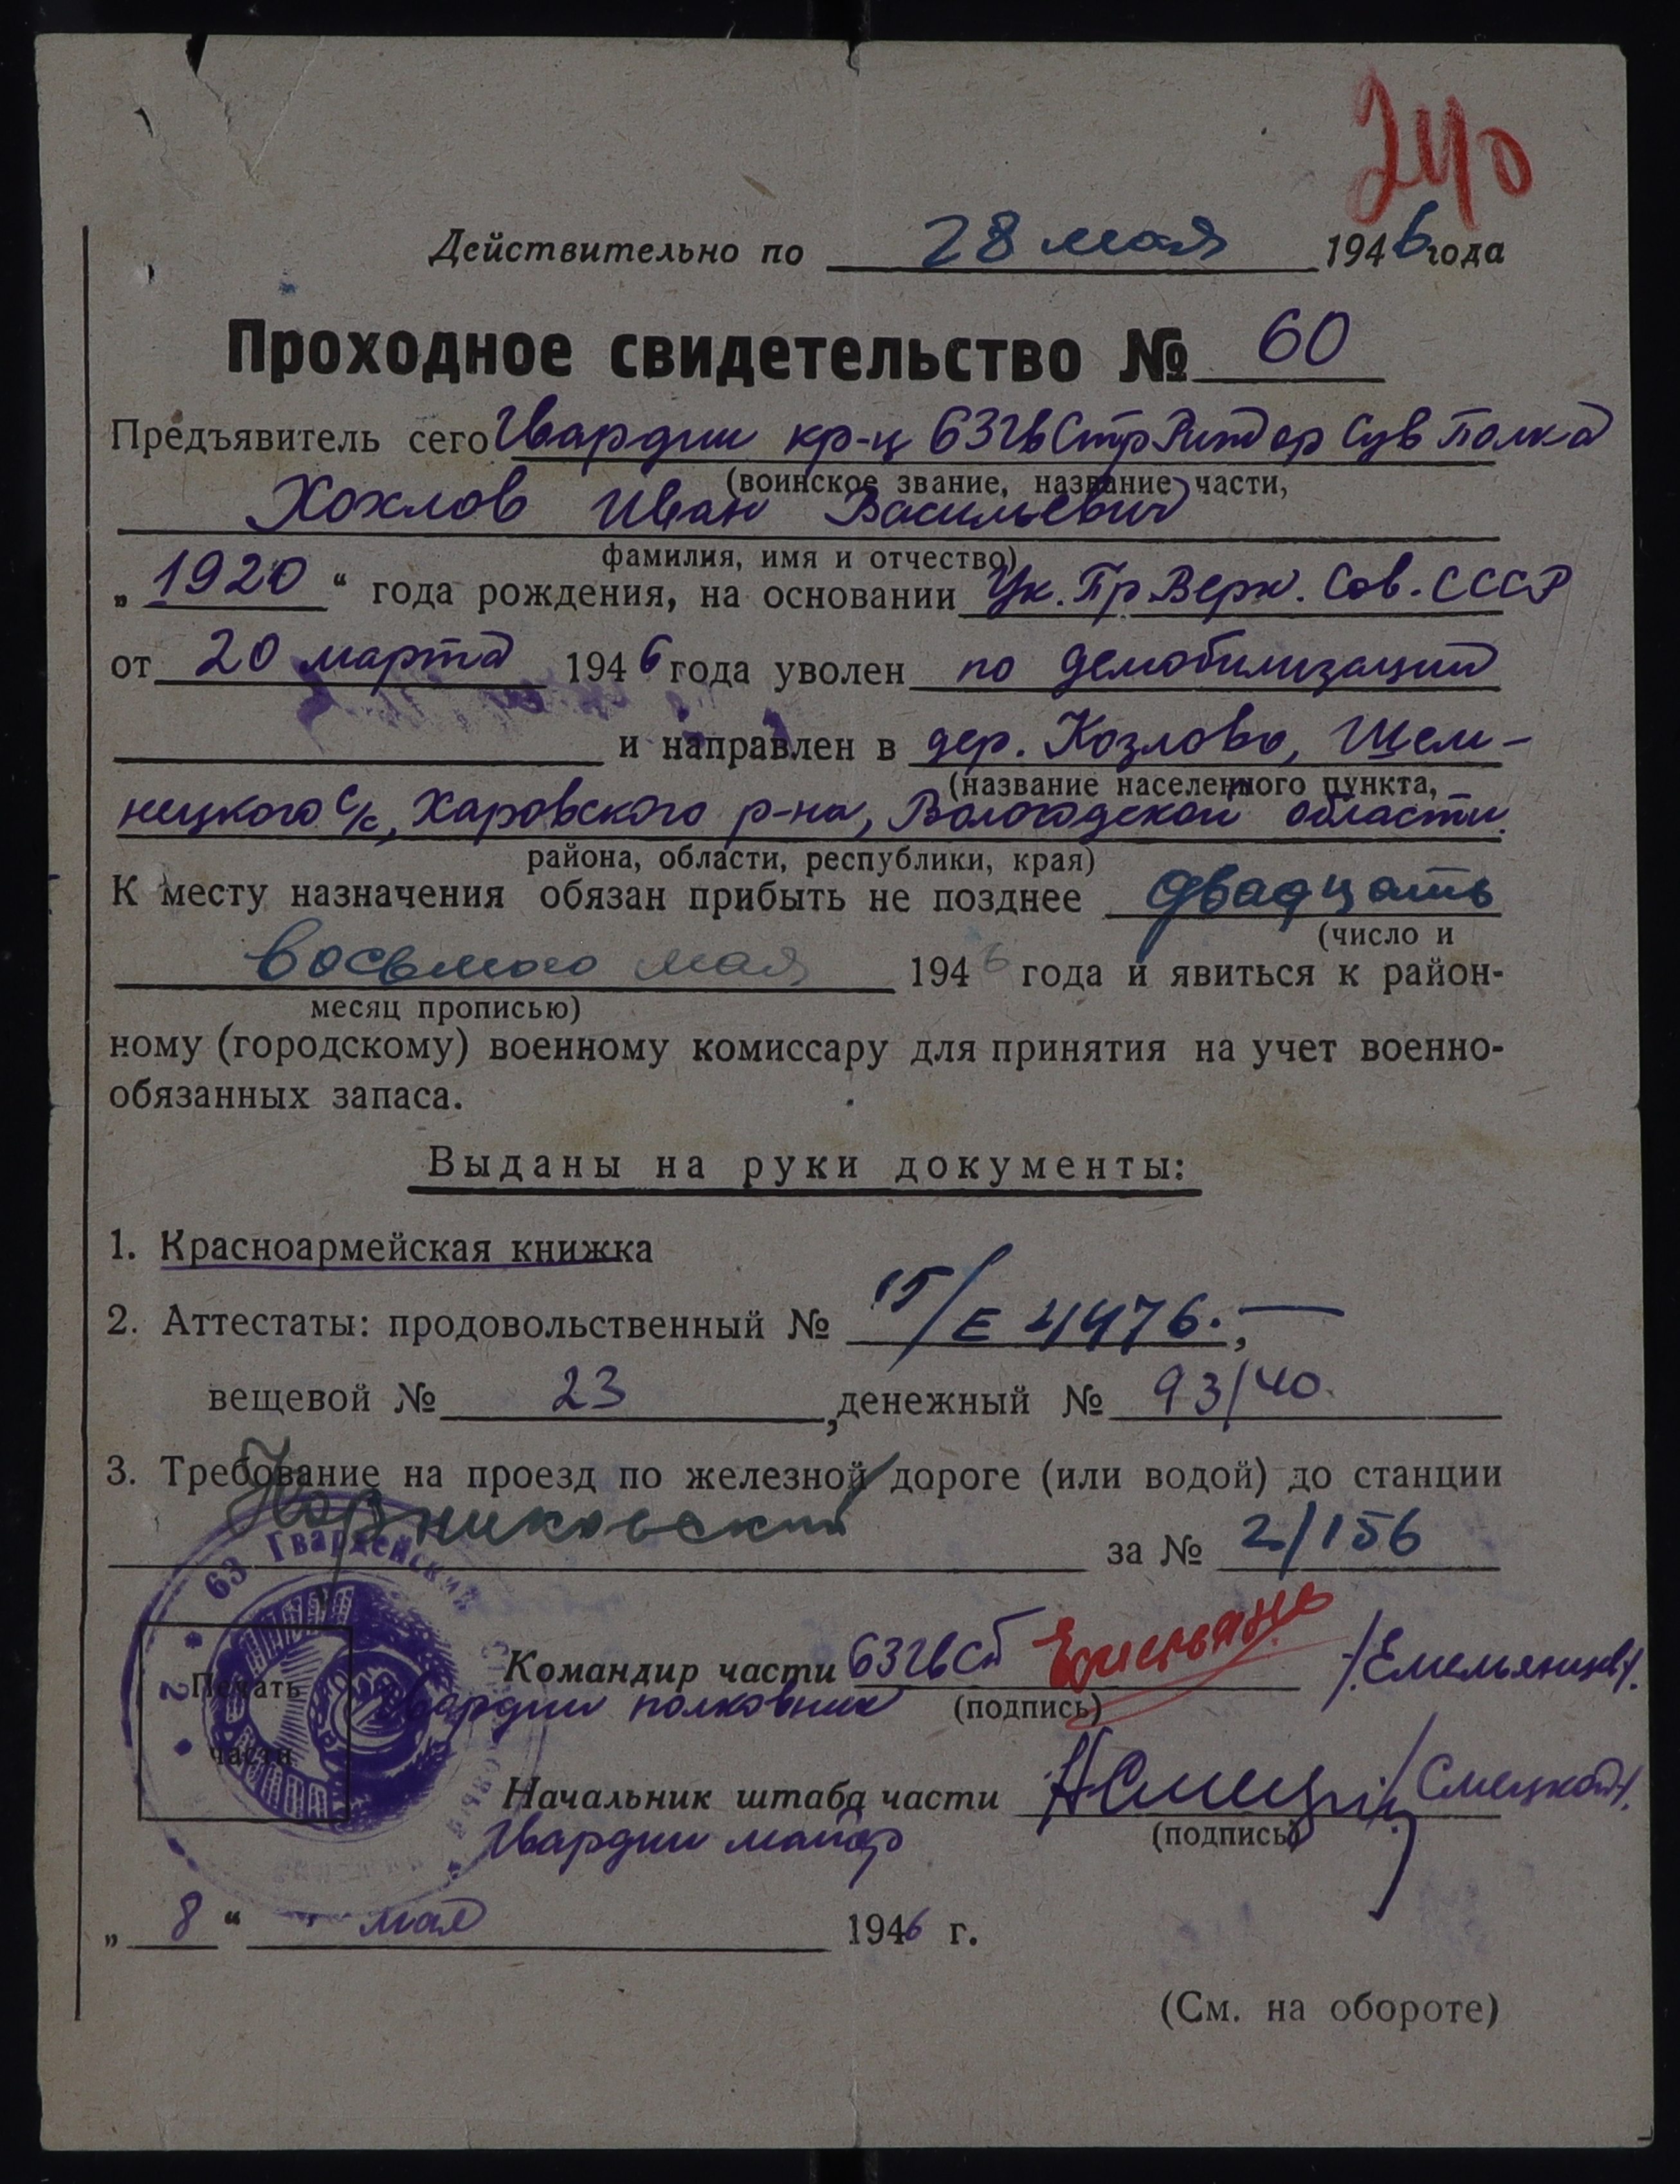 240
Действительно по 28 мая 1946 года
Проходное свидетельство № 60
Предъявитель сего Гвардии кр-ц 63 гв Стр Рит Пол
(воинское звание, название части,
Хохлов Иван Васильевич
фамилия, имя и отчество)
„1920“ года рождения, на основании Ук. Пр Верх. Сов. СССР
от 20 марта 1946 года уволен по демобилизации
и направлен в дер. Козлово, Шем-
(название населенного пункта,
нецкого с/с, Харовского р-на, Вологодской области.
района, области, республики, края)
К месту назначения обязан прибыть не позднее двадцать
(число и
восьмого мая 1946 года и явиться к район-
месяц прописью)
ному (городскому) военному комиссару для принятия на учет военно-
обязанных запаса.
Выданы на руки документы:
1. Красноармейская книжка
2. Аттестаты: продовольственный № 15/Е 4476.,—
вещевой № 23, денежный № 93/40.
3. Требование на проезд по железной дороге (или водой) до станции
за № 2/156
63 Гвардейский
Печать
части
Командир части 63 гв сп /Емельянцев/.
Гвардии полковник (подпись)
Начальник штаба части /Смецкой/.
Гвардии майор (подпись)
„8“ мая 1946 г.
(См. на обороте)